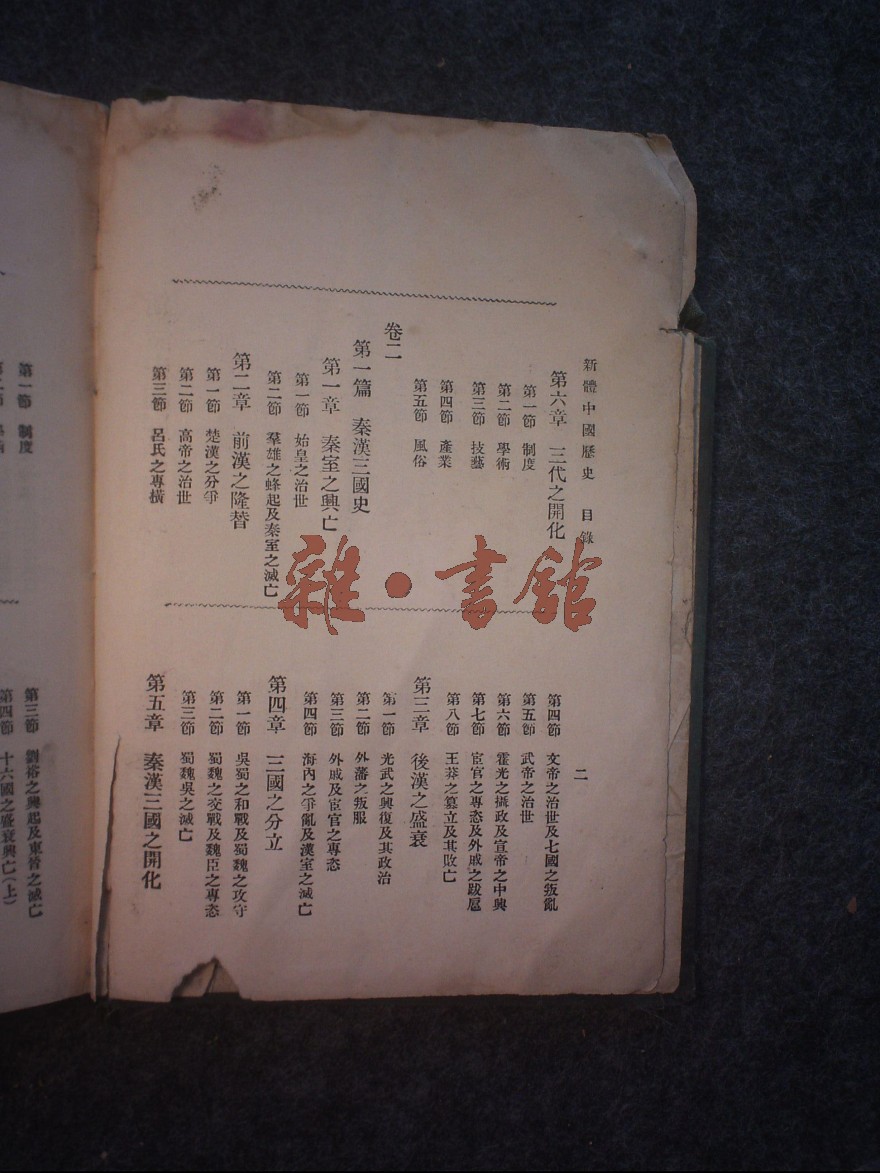 新體中國歷史　目錄
二
第六章　三代之開化
第一節　制度
第二節　學術
第三節　技藝
第四節　產業
第五節　風俗
卷二
第一篇　秦漢三國史
第一章　秦室之興亡
第一節　始皇之治世
第二節　羣雄之蜂起及秦室之滅亡
第二章　前漢之隆替
第一節　楚漢之分爭
第二節　高帝之治世
第三節　呂氏之專橫
第四節　文帝之治世及七國之叛亂
第五節　武帝之治世
第六節　霍光之攝政及宣帝之中興
第七節　宦官之專恣及外戚之跋扈
第八節　王莽之篡立及其敗亡
第三章　後漢之盛衰
第一節　光武之興復及其政治
第二節　外藩之叛服
第三節　外戚及宦官之專恣
第四節　海內之爭亂及漢室之滅亡
第四章　三國之分立
第一節　吳蜀之和戰及蜀魏之攻守
第二節　蜀魏之交戰及魏臣之專恣
第三節　蜀魏吳之滅亡
第五章　秦漢三國之開化
第一節　制度
第三節　劉裕之興起及東晉之滅亡
第四節　十六國之盛衰興亡（上）
雜・書館